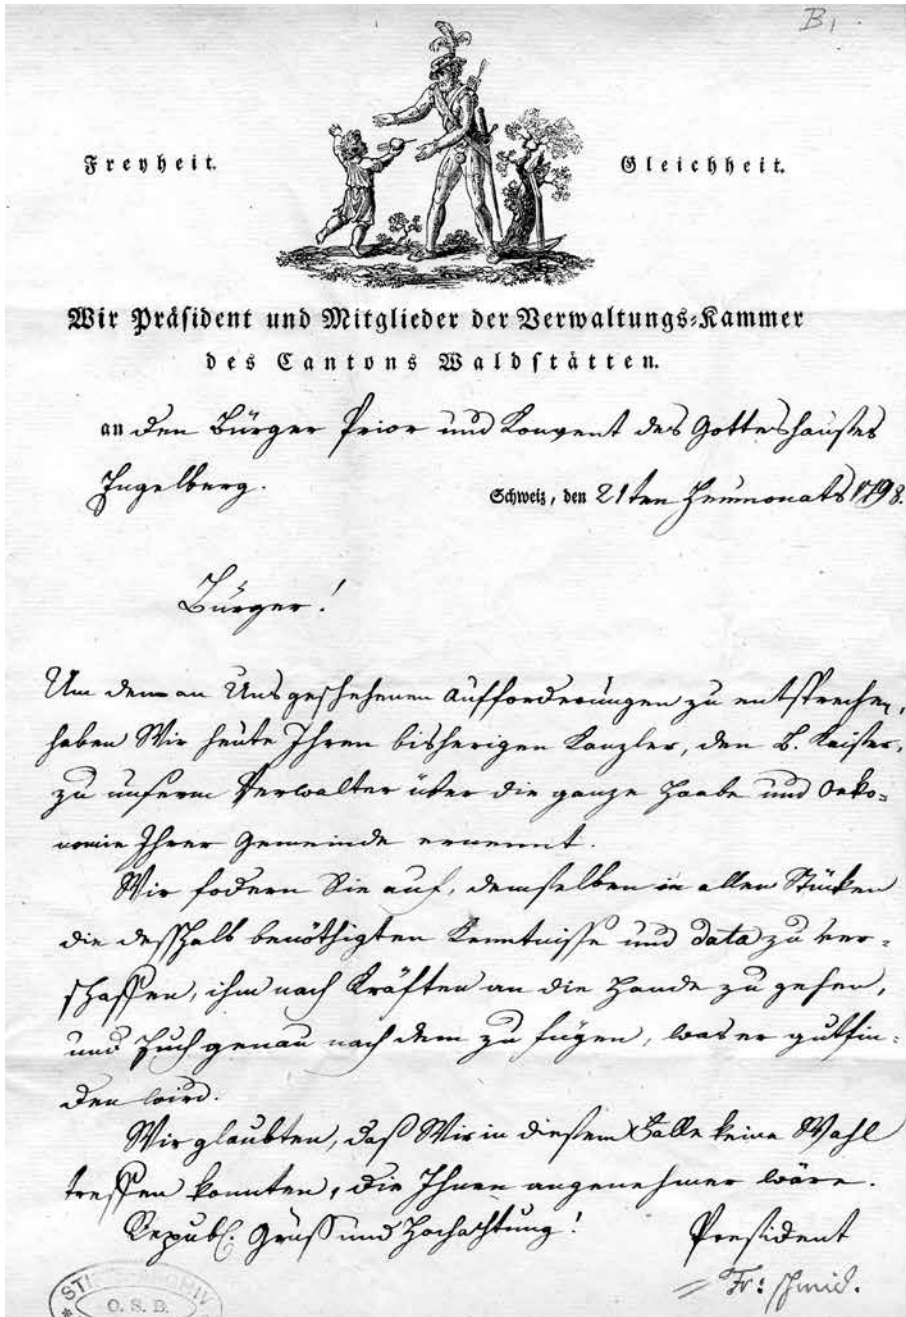 B1
Freyheit.
Gleichheit.
Wir Präsident und Mitglieder der Verwaltungs-Kammer
des Cantons Waldstätten.
an den Bürger Prior und Konvent des Gotteshauses
Engelberg.
Schweiz, den 21ten Heumonats 1798.
Bürger!
Um den an Uns geschehenen Aufforderungen zu entsprechen,
haben Wir heute Ihren bisherigen Kanzler, den B. Kaiser,
zu unserm Verwalter über die ganze Haabe und Oeko-
nomie Ihrer Gemeinde ernennt.
Wir fodern Sie auf, demselben in allen Stücken
die desshalb benöthigten Kenntnisse und data zu ver-
schaffen, ihm nach Kräften an die Hande zu gehen,
und Euch genau nach dem zu fügen, was er gutfin-
den wird.
Wir glaubten, daß Wir in diesem Falle keine Wahl
treffen konnten, die Ihnen angenehmer wäre.
Republ. Gruß und Hochachtung!
President
Fr: Schmid.
STIFTSARCHIV
O. S. B.